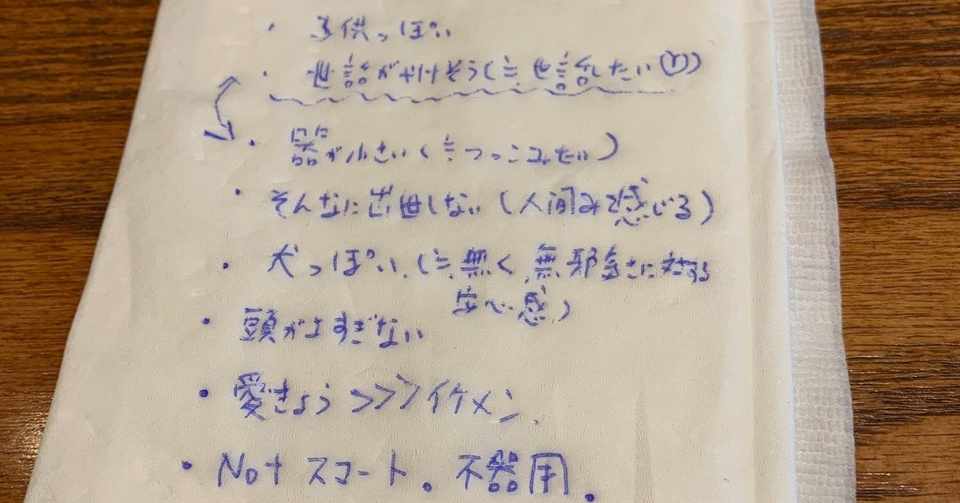 ・子供っぽい
・世話がやけそう(≒世話したい(♡))
・器が小さい(≒つっこみたい)
・そんなに出世しない(人間みを感じる)
・犬っぽい(≒無く無邪気さに対する
安心感)
・頭がよすぎない
・愛きょう>>>イケメン
・Not スマート。不器用。